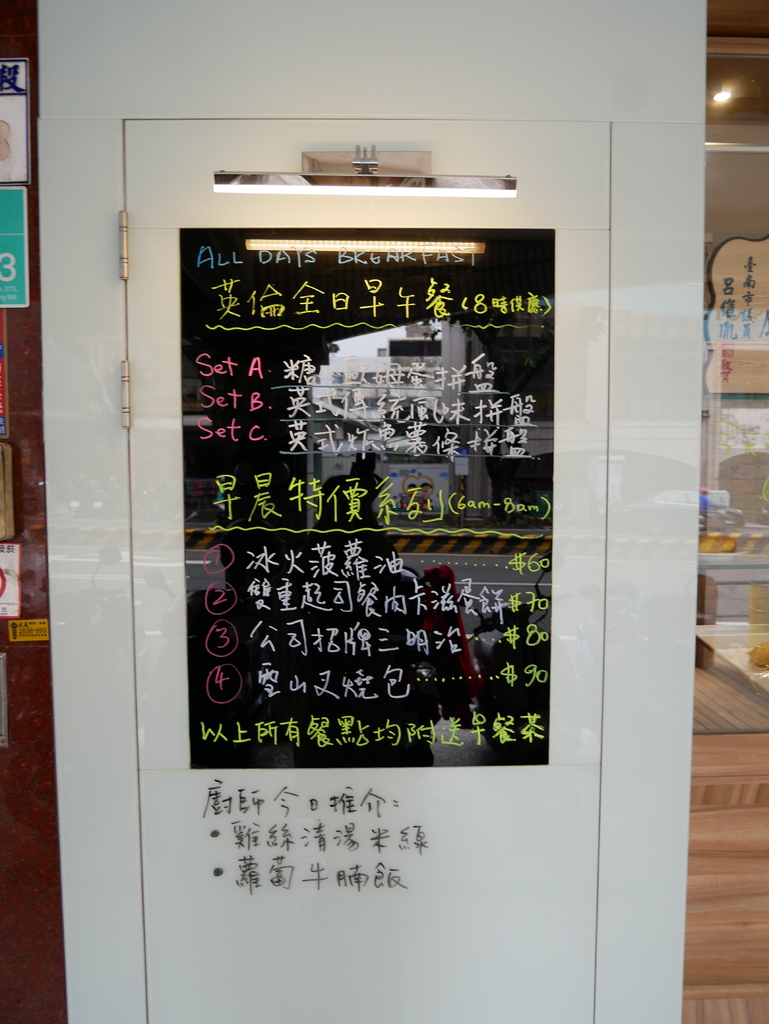 ALL DAYS BREAKFAST
英倫全日早午餐(8時供應)
Set A. 糖心歐姆蛋拼盤
Set B. 英式傳統風味拼盤
Set C. 英式炸魚薯條拼盤
早晨特價系列(6am-8am)
① 冰火菠蘿油........$60
② 雙重起司餐肉卡滋蛋餅$70
③ 公司招牌三明治....$80
④ 雪山叉燒包.........$90
以上所有餐點均附送早餐茶
廚師今日推介:
•雞絲清湯米線
•蘿蔔牛腩飯
段
3
臺南市議員
呂維胤
敬賀